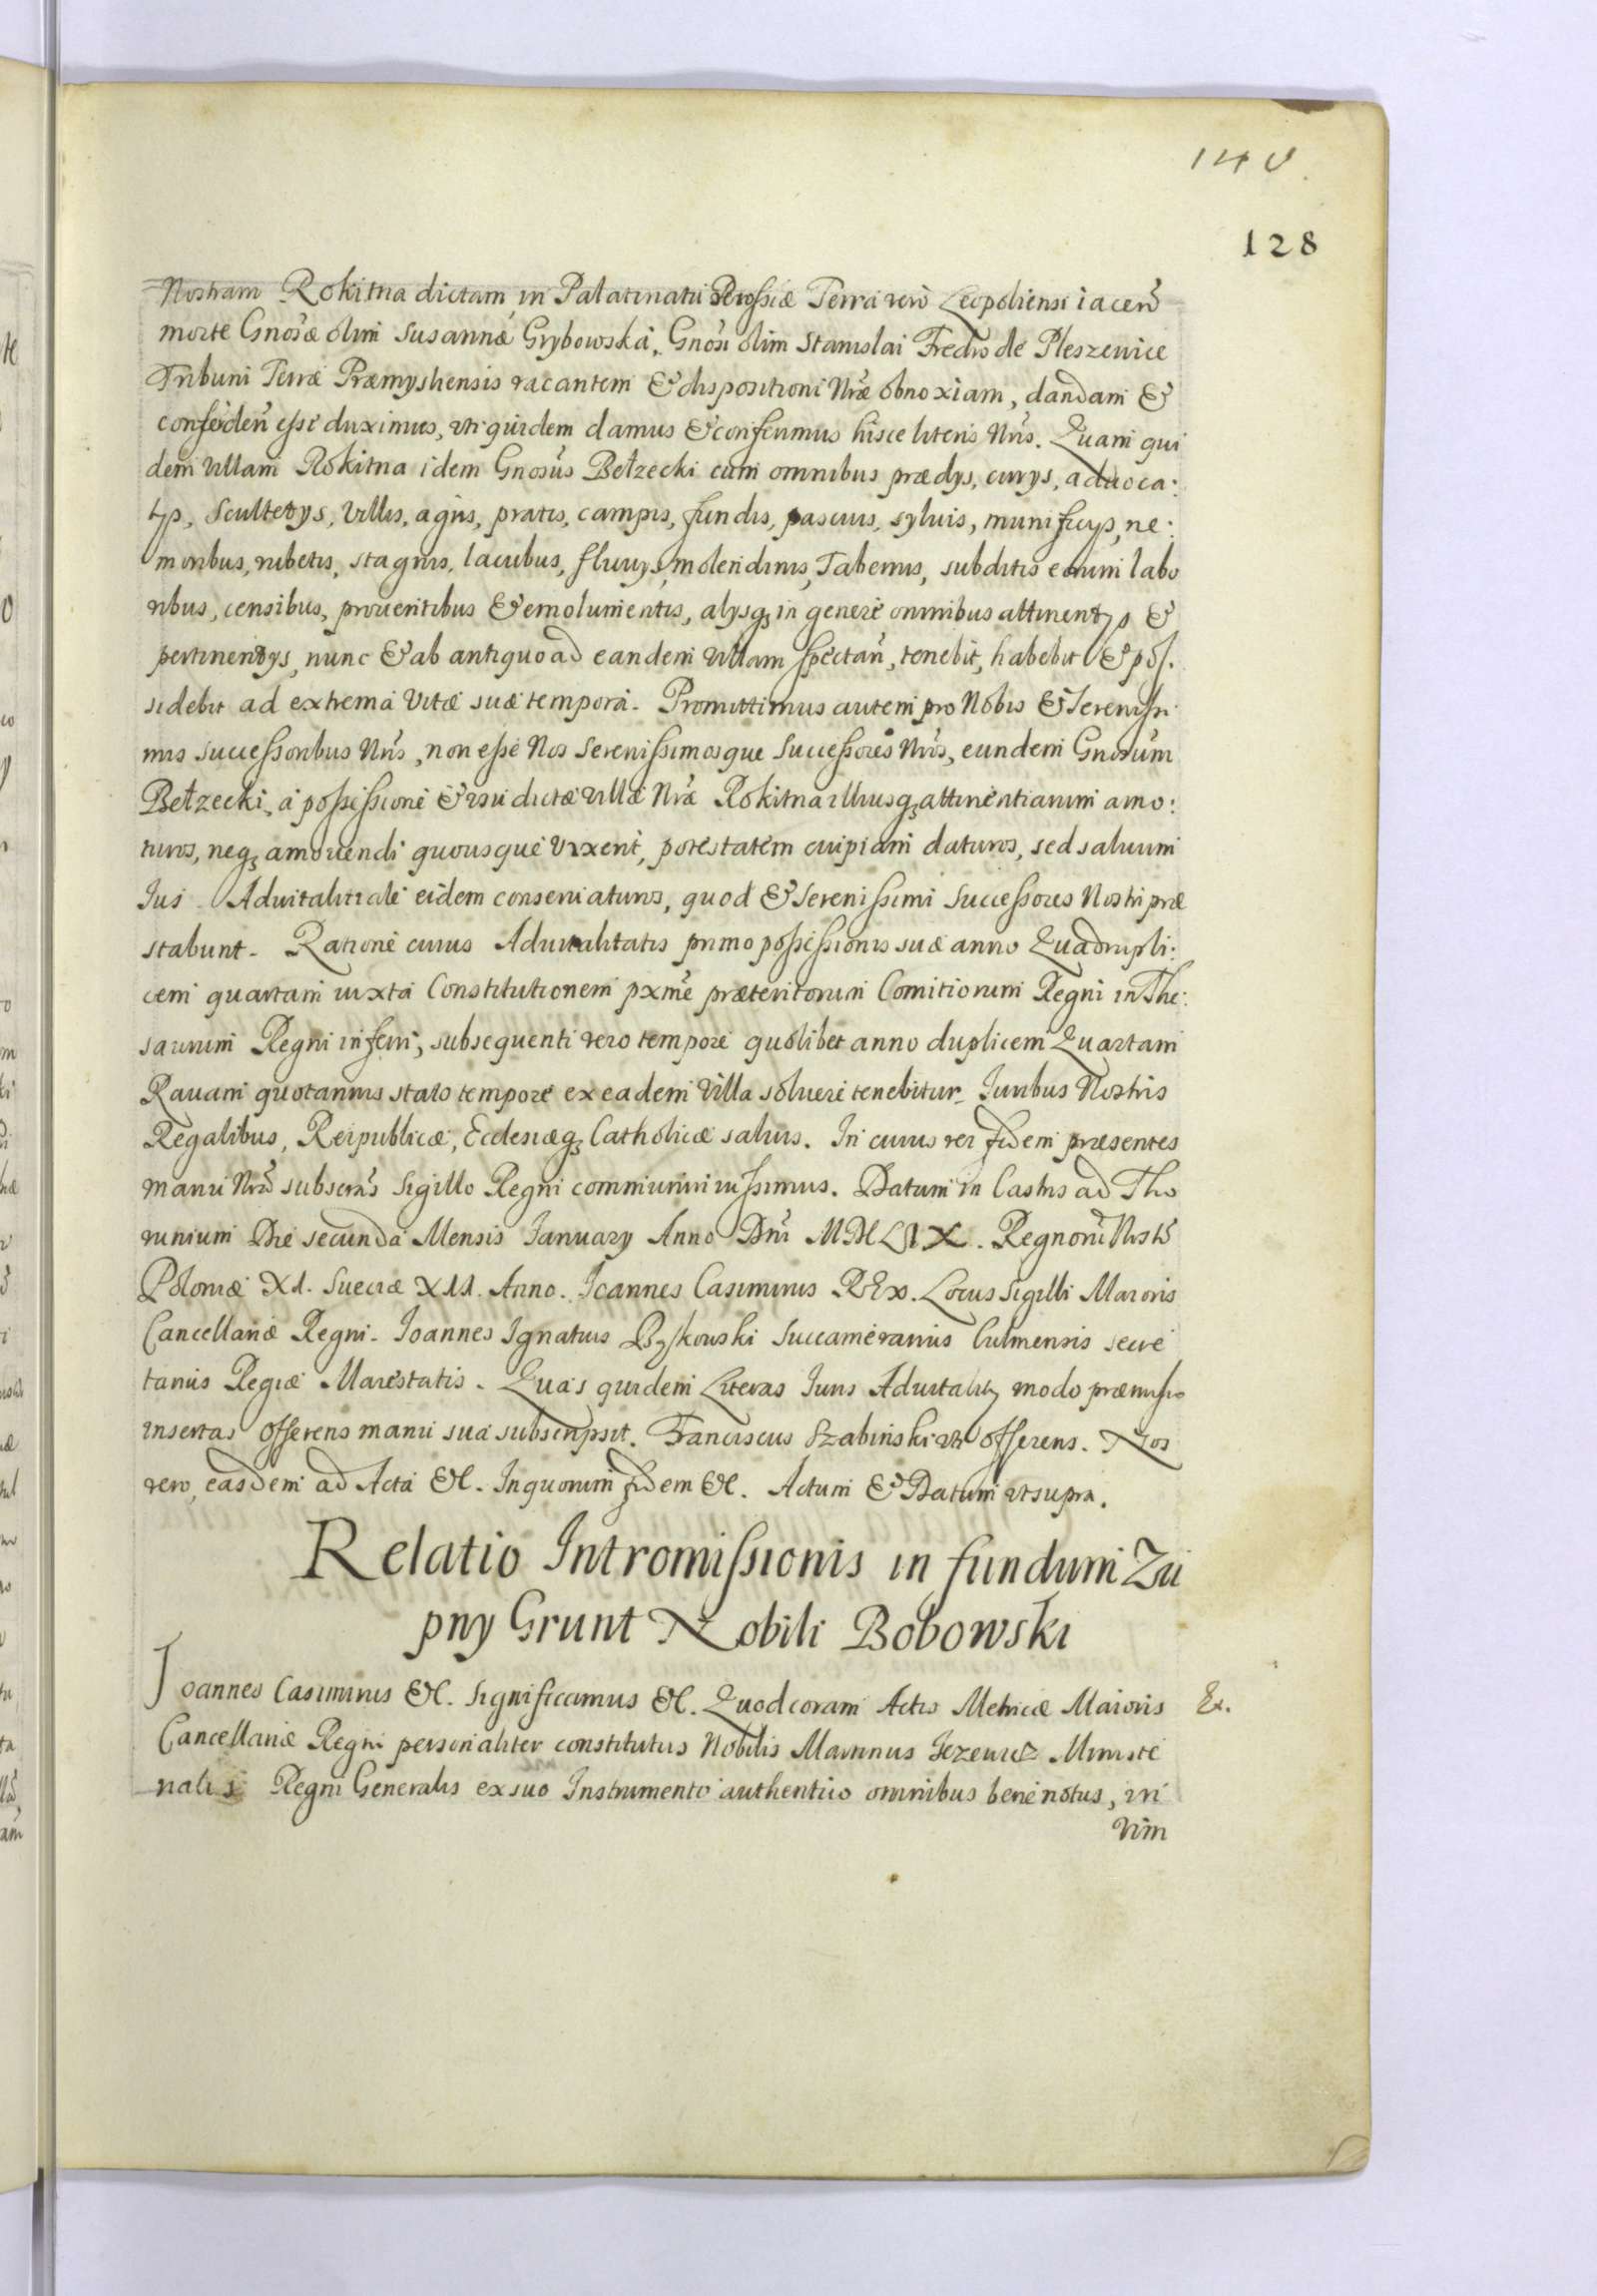 140.
128
Nostram Rokitna dictam in Palatinatu Russiæ Terra verò Leopoliensi iaceñ
morte Gnosæ olim Susannæ Grybowska, Gnosi olim Stanislai Fredro de Pleszewice
Tribuni Terræ Præmysliensis vacantem & dispositioni Nræ obnoxiam, dandam &
conferdeñ esse duximus, uti quidem damus & conferimus hisce literis Nris. Quam qui
dem villam Rokitna idem Gnosus Bełzecki cum omnibus prædys, curys, aduoca:
tys, Scultetys, Villis, agris, pratis, campis, fundis, pascuis, syluis, munificys, ne:
moribus, rubetis, stagnis, lacubus, fluuys, molendinis, Tabernis, subditis eorum labo
ribus, censibus, prouentibus & emolumentis, alysq; in genere omnibus attinentys &
pertinentys, nunc & ab antiquo ad eandem villam spectañ, tenebit, habebit & pos.
sidebit ad extrema vitæ suæ tempora. Promittimus autem pro Nobis & Serenissi
mis successoribus Nris, non esse Nos Serenissimosque Successores Nros, eundem Gnosum
Bełzecki, à possessione & vsu dictæ villæ Nræ Rokitna illiusq; attinentiarum amo:
turos, neq; amouendi quousque vixerit, potestatem cuipiam daturos, sed saluum
Ius Aduitalitiale eidem conseruaturos, quod & Serenissimi Successores Nostri præ
stabunt. Ratione cuius Aduitalitatis primo possessionis suæ anno Quadrupli:
cem quartam iuxta Constitutionem pxme præteritorum Comitiorum Regni in The:
saurum Regni inferri, subsequenti vero tempore quolibet anno duplicem Quartam
Rauam quotannis stato tempore ex eadem villa soluere tenebitur. Iuribus Nostris
Regalibus, Reipublicæ, Ecclesiæq; Catholicæ saluis. In cuius rei fidem præsentes
manu Nra subscras Sigillo Regni communiri iussimus. Datum in Castris ad Tho
runium Die secunda Mensis January Anno Dni MDCLIX. Regnorū Nrstō
Poloniæ XI. Sueciæ XII. Anno. Ioannes Casimirus REx. Locus Sigilli Maioris
Cancellariæ Regni. Ioannes Ignatius Bąkowski Succamerarius Culmensis Secre
tarius Regiæ Maiestatis. Quas quidem Literas Iuris Aduitality modo præmisso
insertas offerens manu sua subscripsit. Franciscus Szabinski uti offerens. Nos
vero, easdem ad Acta &c. In quorum fidem &c. Actum & Datum vt supra.
Relatio Intromissionis in fundum Zu
pny Grunt Nobili Bobowski
Ioannes Casimirus &c. Significamus &c. Quod coram Actis Metricæ Maioris
Ex.
Cancellariæ Regni personaliter constitutus Nobilis Martinus Jezewicz Ministe
rialis Regni Generalis ex suo Instrumento authentico omnibus bene notus, in
vim